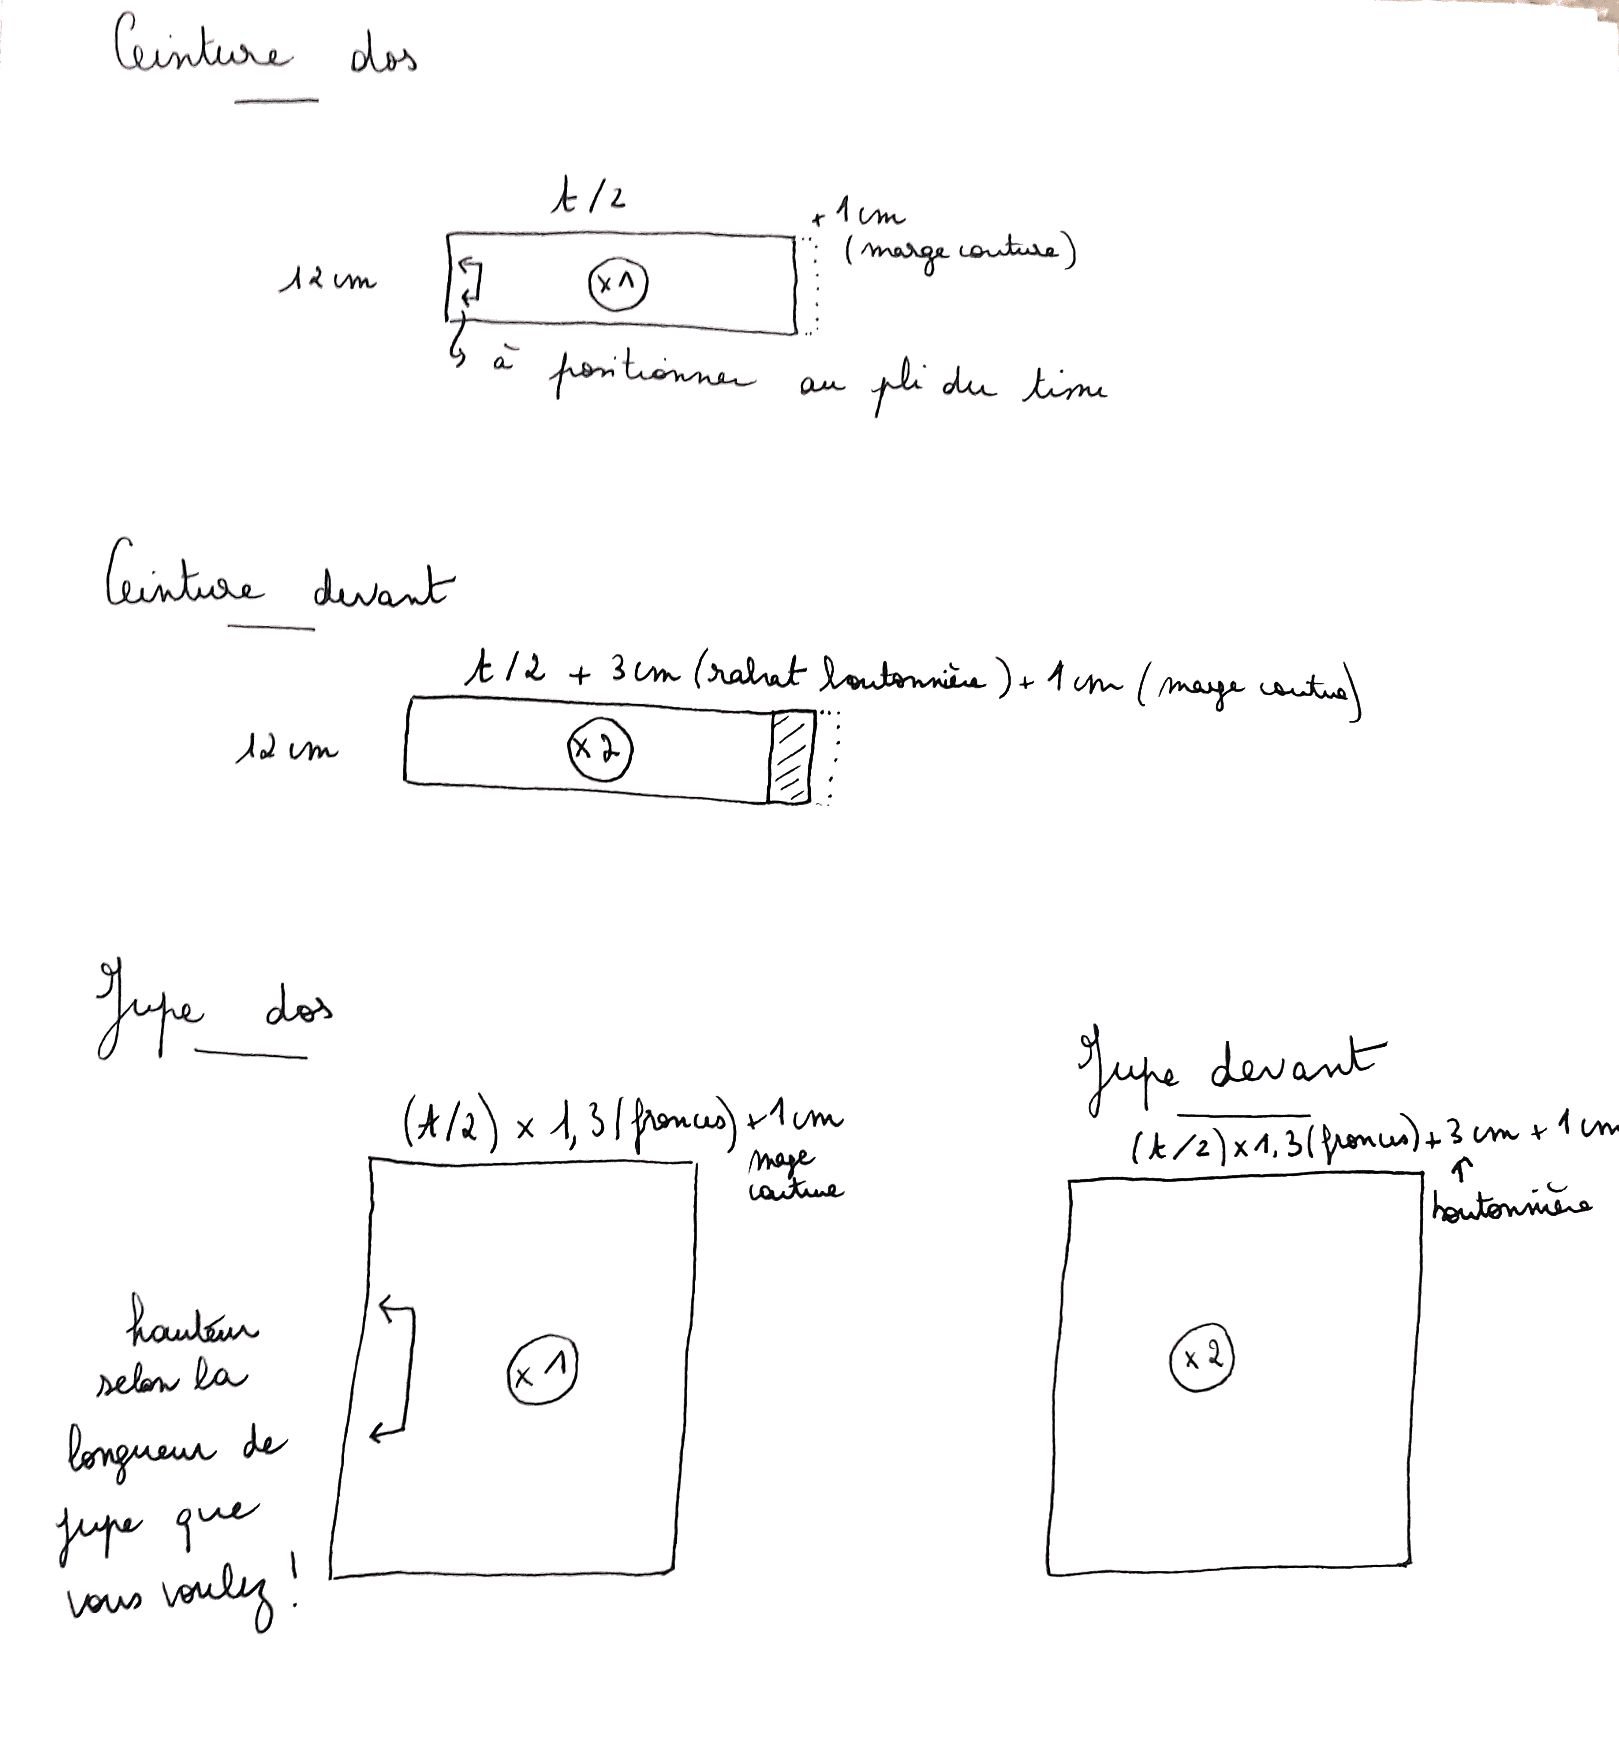 Ceinture dos
t/2
+ 1 cm
(marge couture)
12 cm
x1
à positionner au pli du tissu
Ceinture devant
t/2 + 3 cm (rabat boutonnière) + 1 cm (marge couture)
12 cm
x2
Jupe dos
(t/2) x 1,3 (fronces) + 1 cm
marge
couture
hauteur
selon la
longueur de
jupe que
vous voulez !
x1
Jupe devant
(t/2) x 1,3 (fronces) + 3 cm + 1 cm
boutonnière
x2